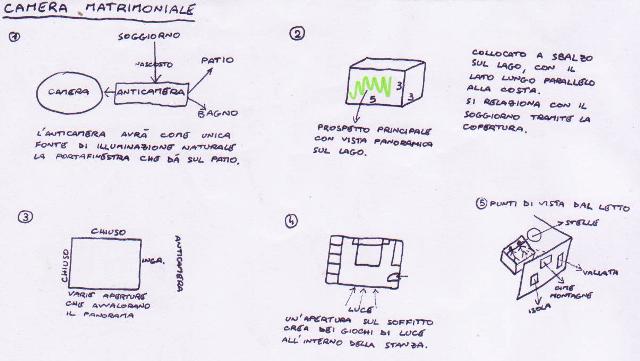 CAMERA MATRIMONIALE
1
SOGGIORNO
NASCOSTO
PATIO
CAMERA
ANTICAMERA
BAGNO
L'ANTICAMERA AVRÁ COME UNICA
FONTE DI ILLUMINAZIONE NATURALE
LA PORTAFINESTRA CHE DÁ SUL PATIO.
2
3
5
3
PROSPETTO PRINCIPALE
CON VISTA PANORAMICA
SUL LAGO.
COLLOCATO A SBALZO
SUL LAGO, CON IL
LATO LUNGO PARALLELO
ALLA COSTA.
SI RELAZIONA CON IL
SOGGIORNO TRAMITE LA
COPERTURA.
3
CHIUSO
CHIUSO
INGR.
ANTICAMERA
VARIE APERTURE
CHE AVVALORANO
IL PANORAMA
4
LUCE
UN'APERTURA SUL SOFFITTO
CREA DEI GIOCHI DI LUCE
ALL'INTERNO DELLA STANZA.
5 PUNTI DI VISTA DAL LETTO
STELLE
VALLATA
CIME
MONTAGNE
ISOLA